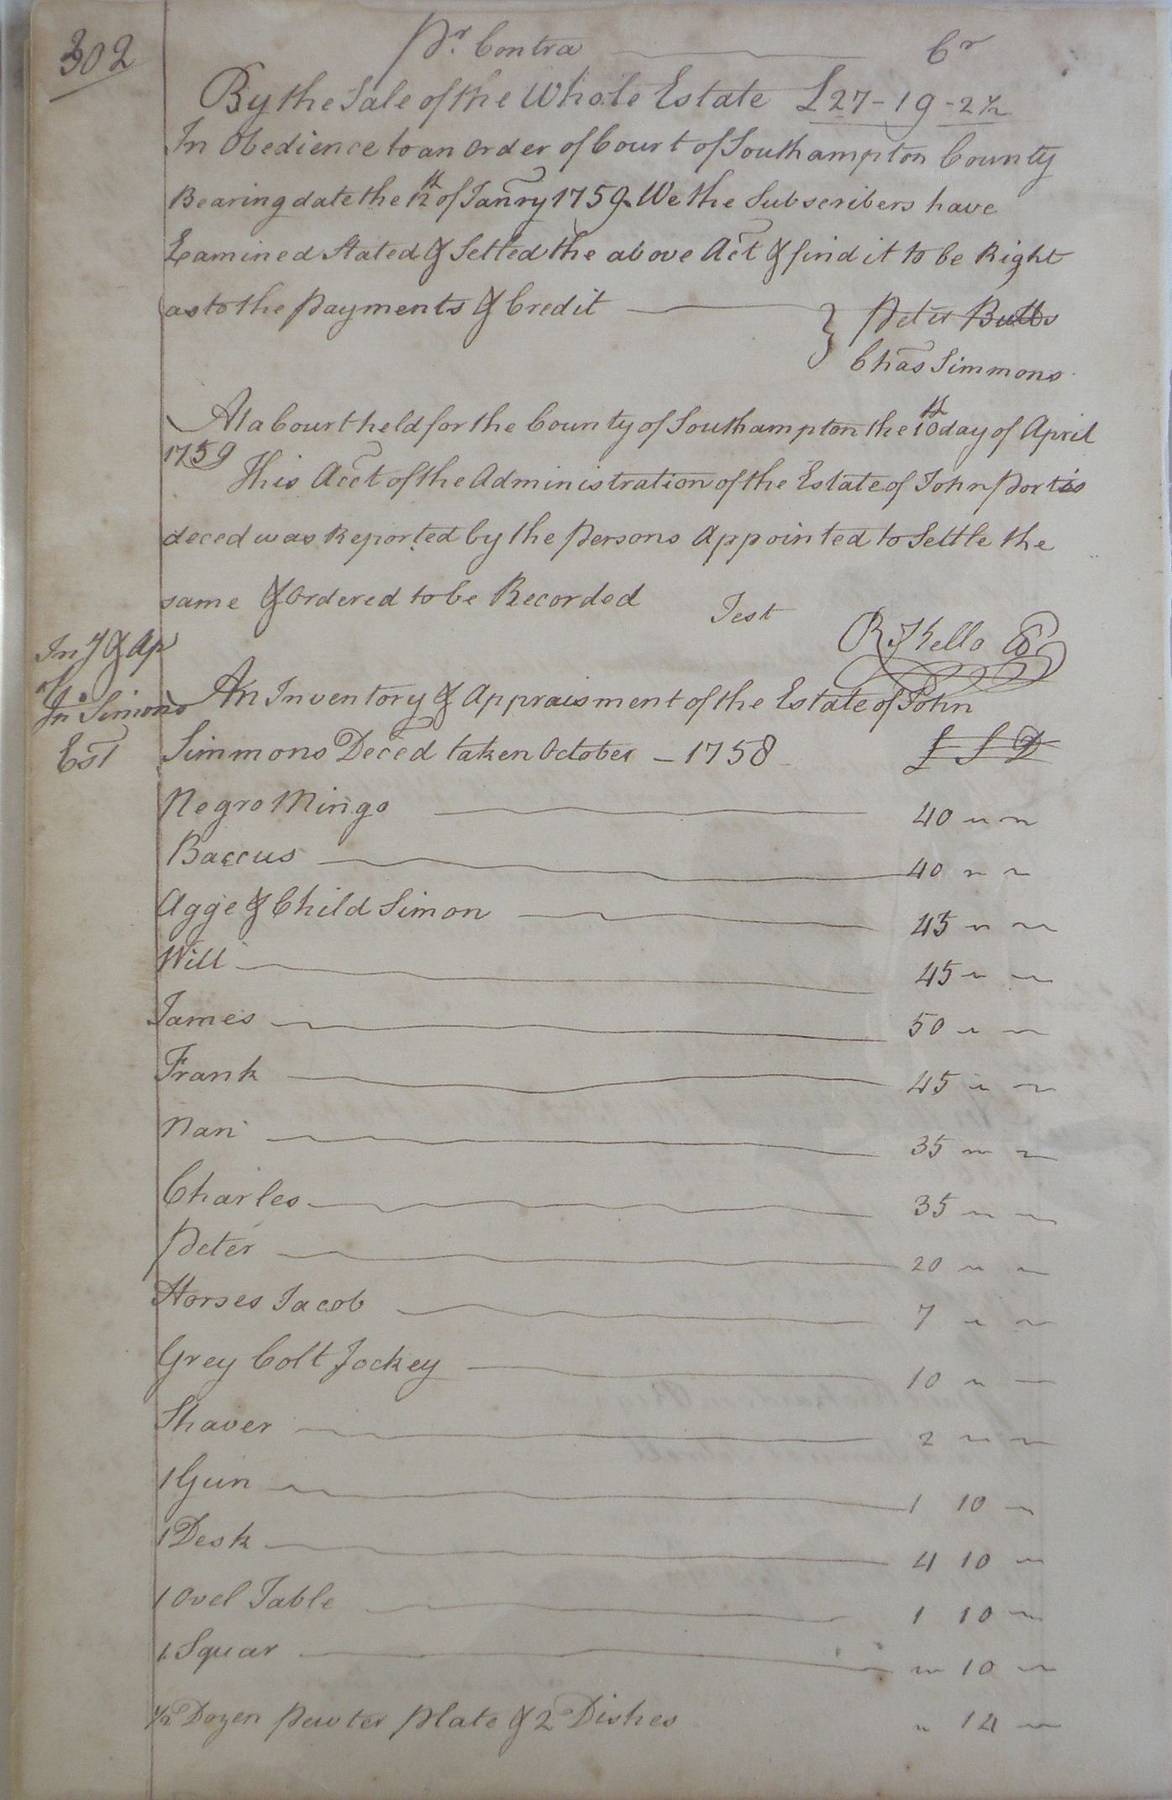 302
Pr. Contra Cr
By the Sale of the Whole Estate £27-19-2½
In Obedience to an Order of Court of Southampton County
Bearing date the 12th of Janry 1759. We the Subscribers have
Examined Stated & Settled the above Act & find it to be Right
as to the Payments & Credit
Peter Butts
Chas Simmons
At a Court held for the County of Southampton the 10th day of April
1759
This Acct of the Administration of the Estate of John Portis
deced was Reported by the Persons Appointed to Settle the
same & Ordered to be Recorded
Test
R. Kello
Inv & Ap
of
Jno Simons
Est
An Inventory & Appraisment of the Estate of John
Simmons Deced taken October - 1758 £ S D
Negro Mingo 40 " "
Baccus 40 " "
Agge & Child Simon 45 " "
Will 45 " "
James 50 " "
Frank 45 " "
Nan 35 " "
Charles 35 " "
Peter 20 " "
Horses Jacob 7 " "
Grey Colt Jockey 10 " -
Shaver 2 " "
1 Gun 1 10 "
1 Desk 4 10 "
1 Ovel Table 1 10 "
1 Squar " 10 "
½ Dozen Pewter Plate & 2 Dishes " 14 "